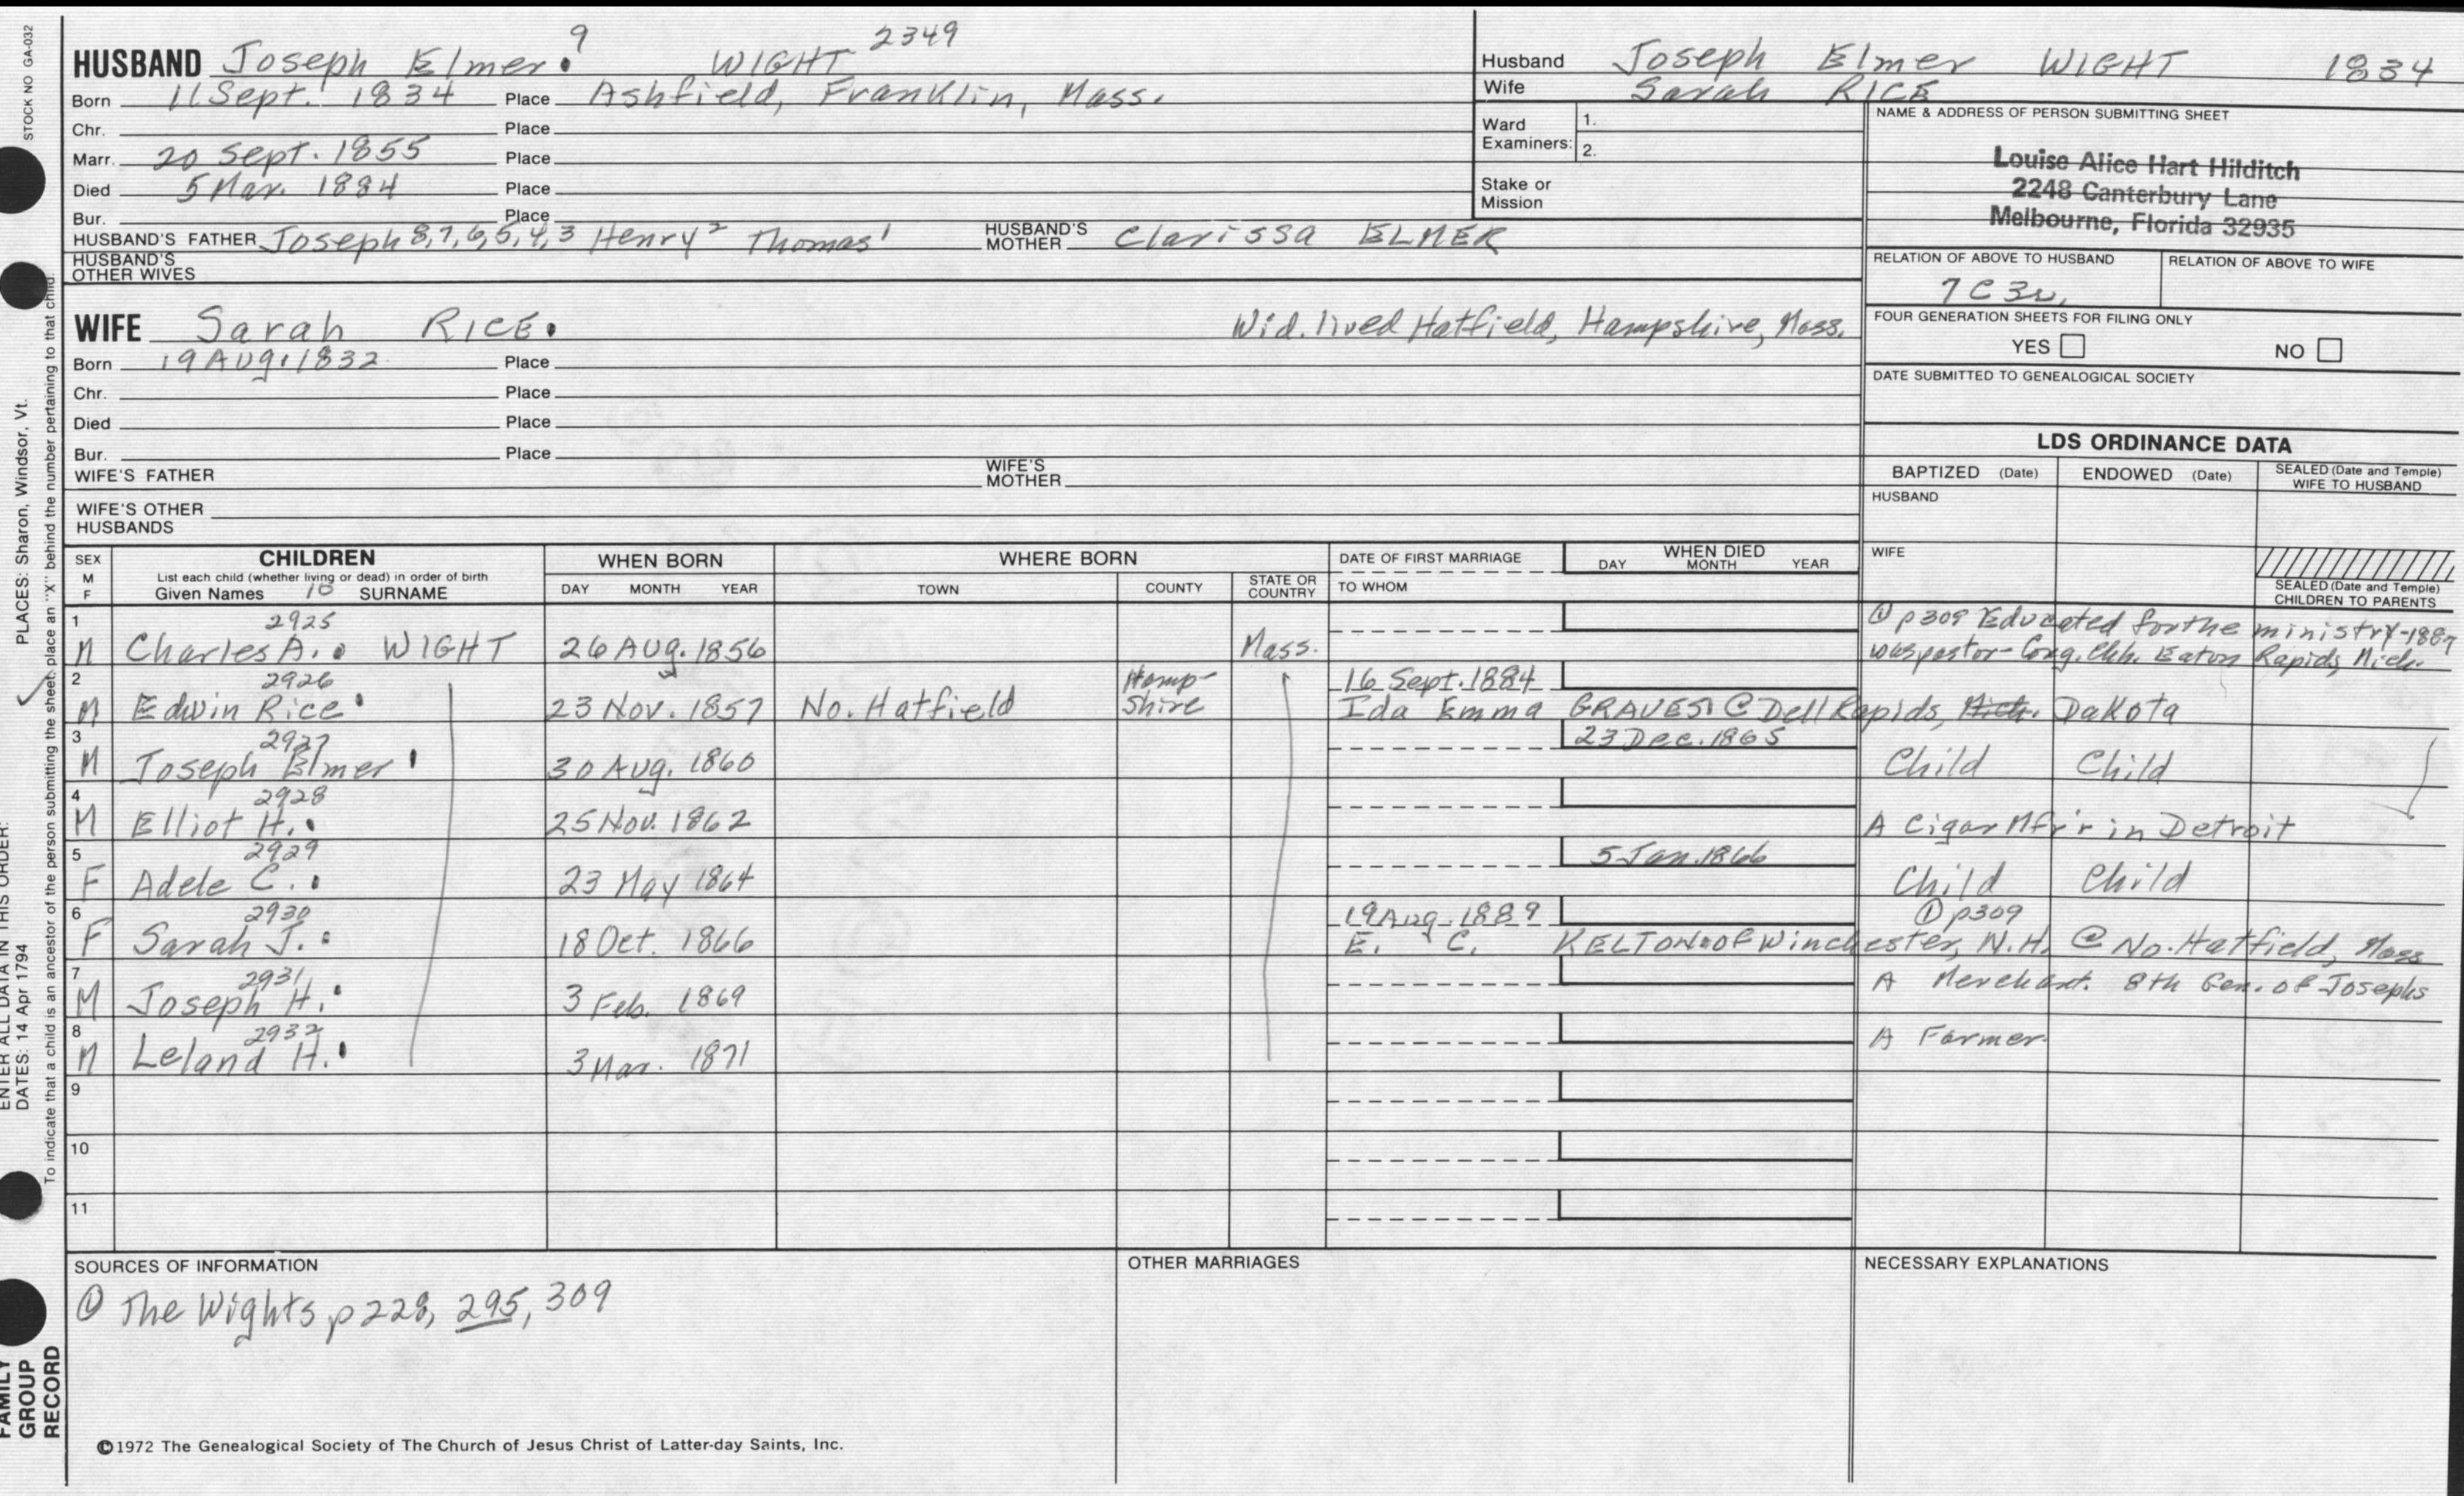 STOCK NO GA-032
PLACES: Sharon, Windsor, Vt.
ENTER ALL DATA IN THIS ORDER:
DATES: 14 Apr 1794
To indicate that a child is an ancestor of the person submitting the sheet, place an "X" behind the number pertaining to that child.
FAMILY
GROUP
RECORD
HUSBAND Joseph Elmer. 9 WIGHT 2349
Born 11 Sept. 1834 Place Ashfield, Franklin, Mass.
Chr. Place
Marr. 20 Sept. 1855 Place
Died 5 Mar. 1884 Place
Bur. Place
HUSBAND'S FATHER Joseph 8,7,6,5,4,3 Henry 2 Thomas 1 HUSBAND'S MOTHER Clarissa ELMER
HUSBAND'S
OTHER WIVES
Husband Joseph Elmer WIGHT 1834
Wife Sarah RICE
Ward
Examiners:
1.
2.
Stake or
Mission
NAME & ADDRESS OF PERSON SUBMITTING SHEET
Louise Alice Hart Hilditch
2248 Canterbury Lane
Melbourne, Florida 32935
RELATION OF ABOVE TO HUSBAND RELATION OF ABOVE TO WIFE
7C 3
FOUR GENERATION SHEETS FOR FILING ONLY
YES NO
DATE SUBMITTED TO GENEALOGICAL SOCIETY
WIFE Sarah RICE. Wid. lived Hatfield, Hampshire, Mass.
Born 19 Aug. 1832 Place
Chr. Place
Died Place
Bur. Place
WIFE'S FATHER WIFE'S MOTHER
WIFE'S OTHER
HUSBANDS
LDS ORDINANCE DATA
BAPTIZED (Date) ENDOWED (Date) SEALED (Date and Temple)
WIFE TO HUSBAND
HUSBAND
WIFE
SEALED (Date and Temple)
CHILDREN TO PARENTS
SEX
M
F
CHILDREN
List each child (whether living or dead) in order of birth
Given Names 10 SURNAME
WHEN BORN
DAY MONTH YEAR
WHERE BORN
TOWN COUNTY STATE OR COUNTRY
DATE OF FIRST MARRIAGE
TO WHOM
WHEN DIED
DAY MONTH YEAR
1 2925 ① p309 Educated for the ministry-1887
M Charles A. WIGHT 26 Aug. 1856 Mass. was pastor- Cong. Chh. Eaton Rapids, Mich.
2 2926 Hamp- 16 Sept. 1884
M Edwin Rice 23 Nov. 1857 No. Hatfield shire Ida Emma GRAVES @ Dell Rapids, Mich. Dakota
3 2927 23 Dec. 1865
M Joseph Elmer 30 Aug. 1860 Child Child
4 2928
M Elliot H. 25 Nov. 1862 A Cigar Mfr'r in Detroit
5 2929 5 Jan. 1866
F Adele C. 23 May 1864 Child Child
6 2930 19 Aug. 1889 ① p309
F Sarah J. 18 Oct. 1866 E. C. KELTON of Winchester, N.H. @ No. Hatfield, Mass
7 2931
M Joseph H. 3 Feb. 1869 A Merchant. 8th Gen. of Josephs
8 2932
M Leland H. 3 Mar. 1871 A Farmer
9
10
11
SOURCES OF INFORMATION
① The Wights p 228, 295, 309
OTHER MARRIAGES
NECESSARY EXPLANATIONS
©1972 The Genealogical Society of The Church of Jesus Christ of Latter-day Saints, Inc.